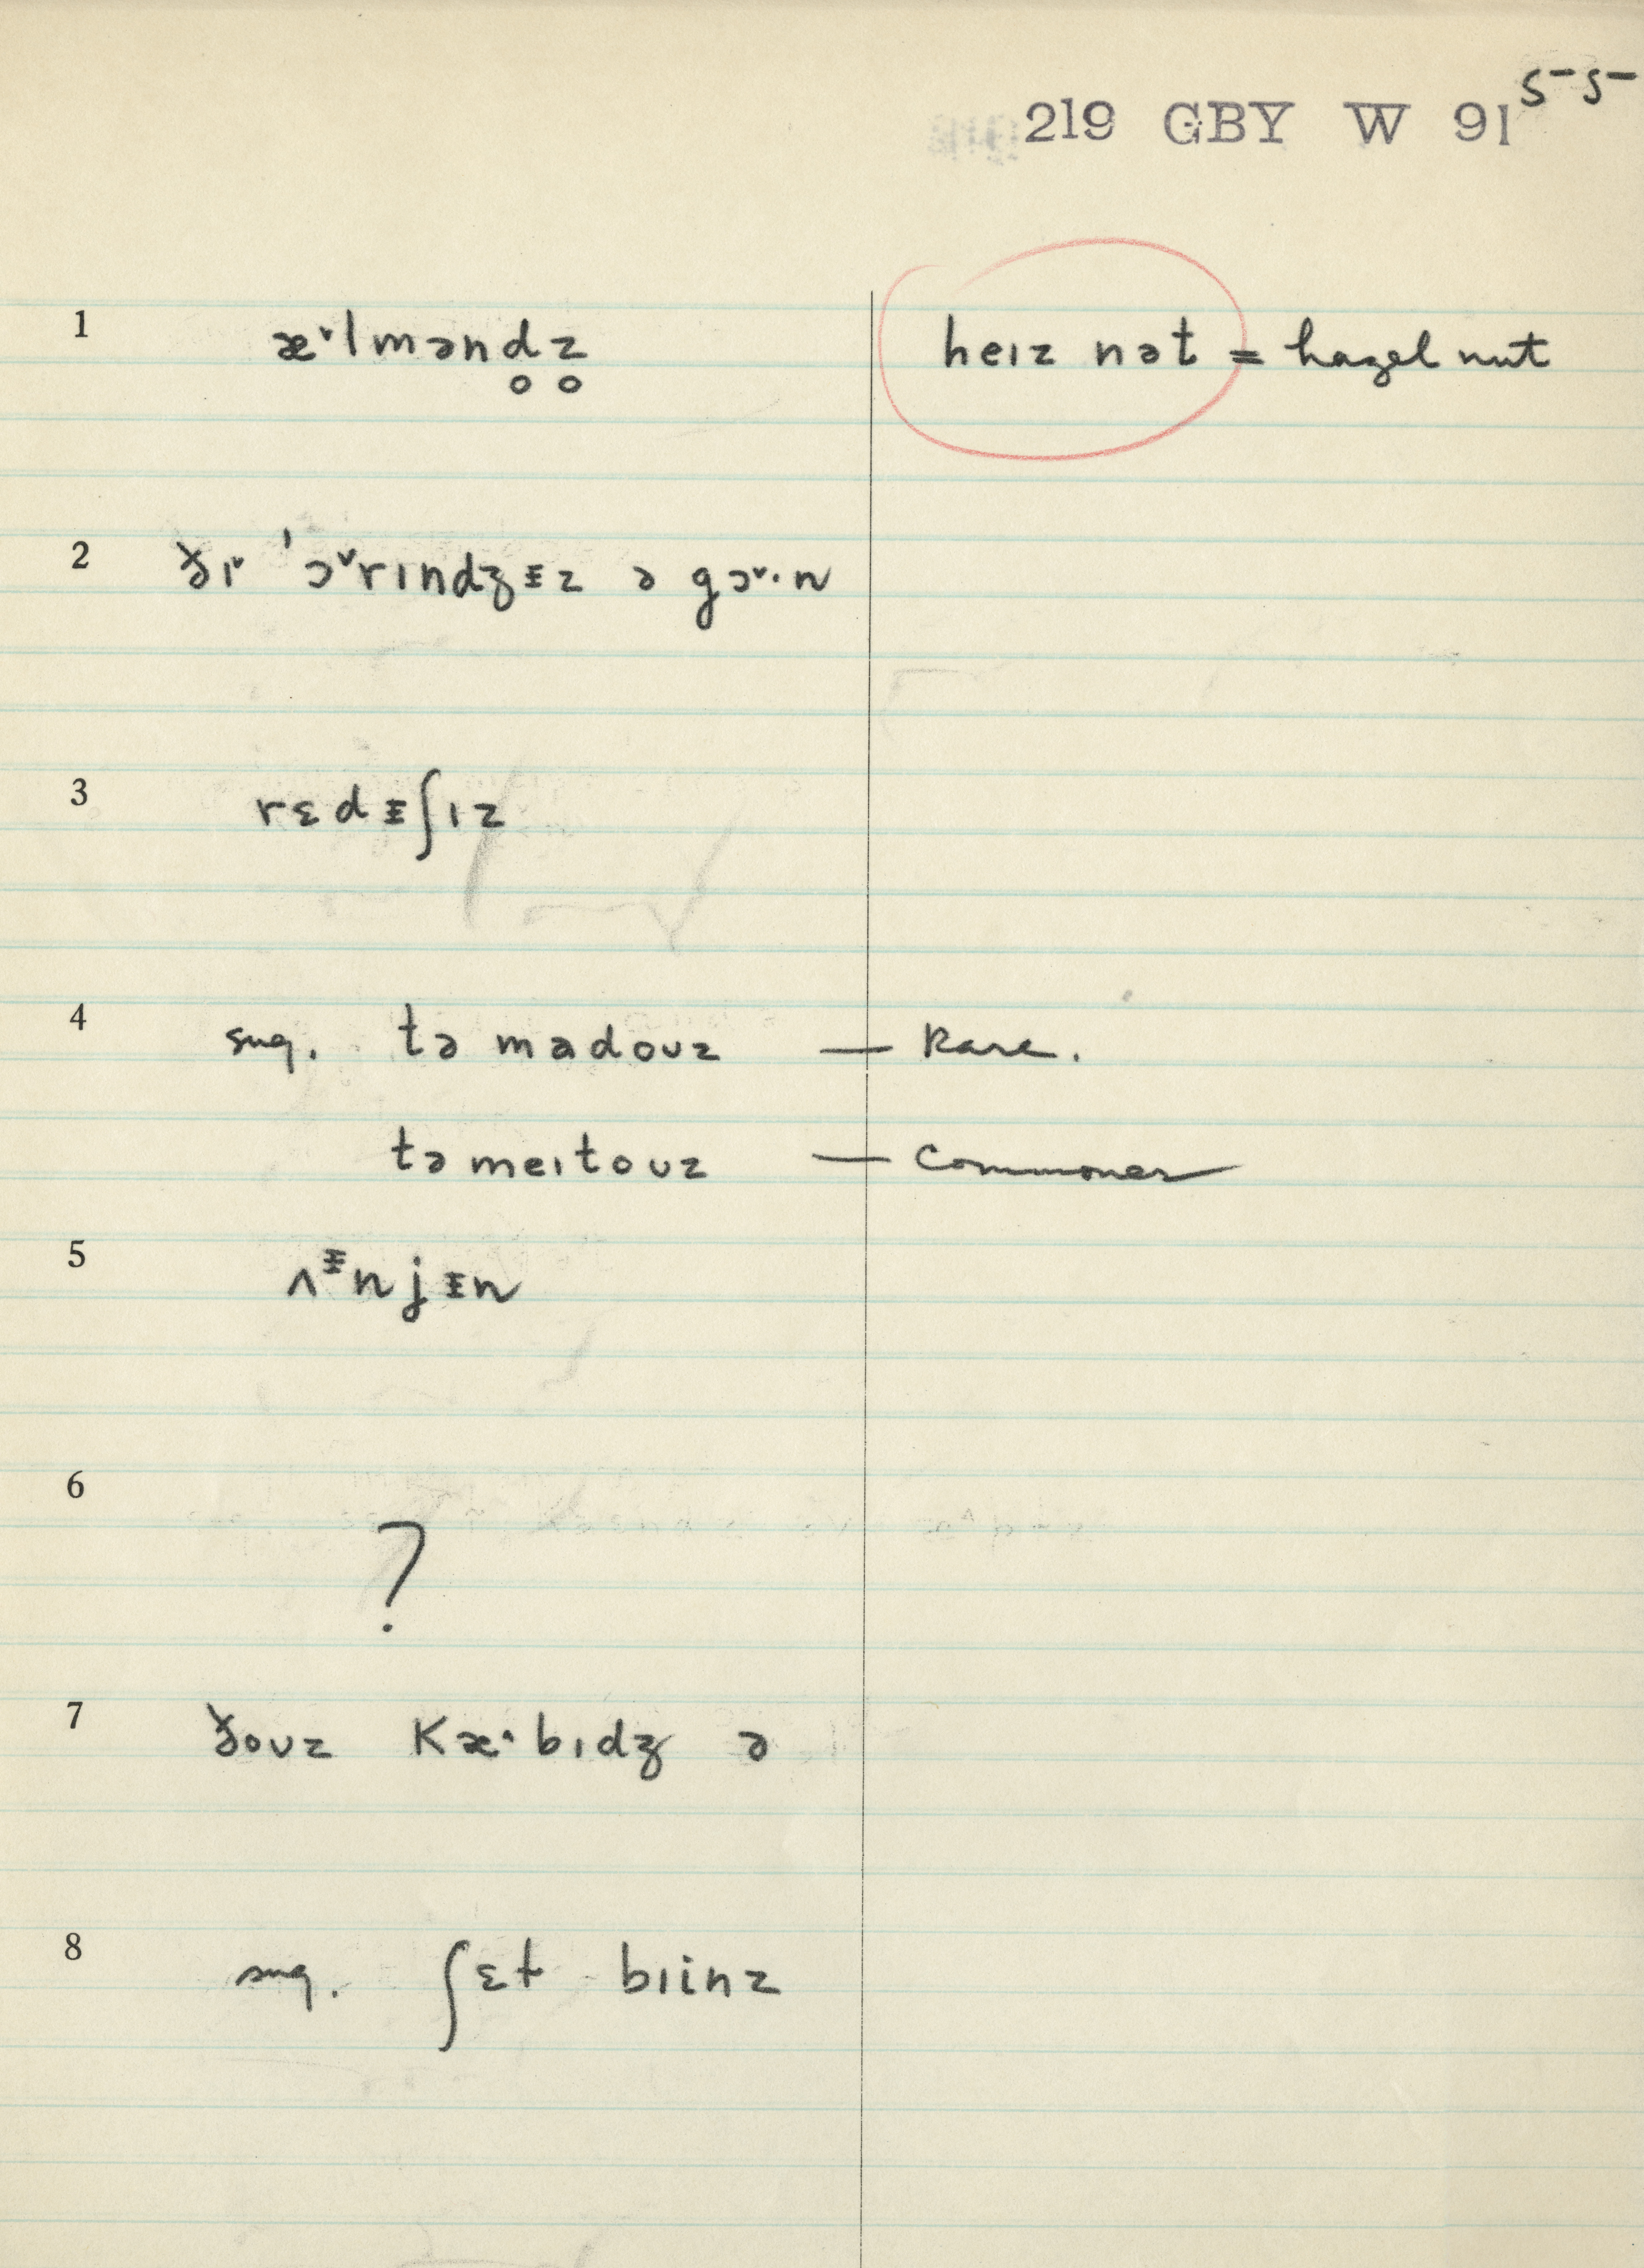 55
219 GBY W 91
1 æ˅lmənd̥z̥ heɪz nət = hazel nut
2 ðɪ˅ ˈɔ˅rɪndʒᵻz ə gɔ˅·n
3 rɛdᵻʃɪz
4 sug. tə madoʊz — Rare.
tə meɪtoʊz — Commoner
5 ʌᵻnjᵻn
6 ?
7 ðoʊz kæ·bɪdʒ ə
8 sug. ʃɛt bɪinz